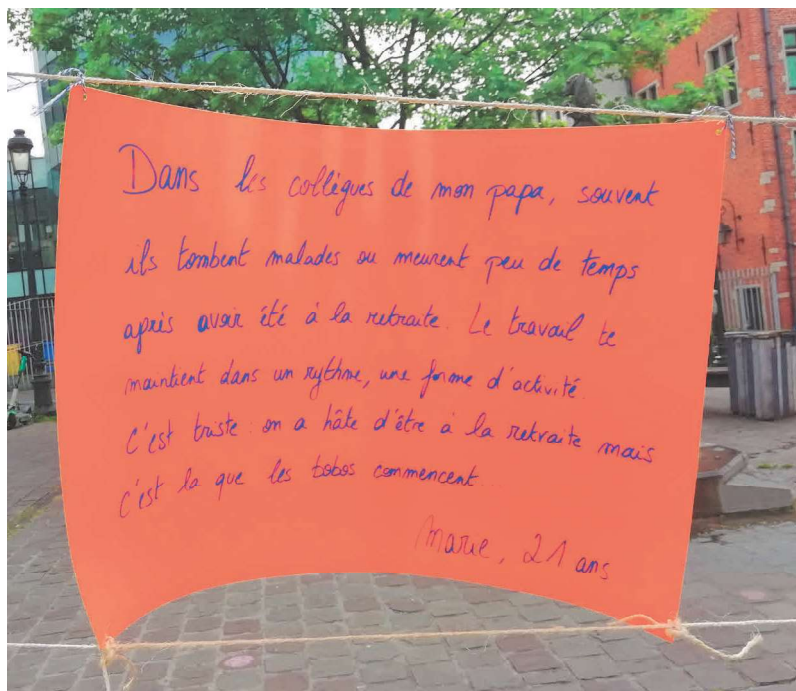 Dans les collègues de mon papa, souvent
ils tombent malades ou meurent peu de temps
après avoir été à la retraite. Le travail te
maintient dans un rythme, une forme d'activité.
C'est triste : on a hâte d'être à la retraite mais
c'est la que les bobos commencent...
Marie, 21 ans